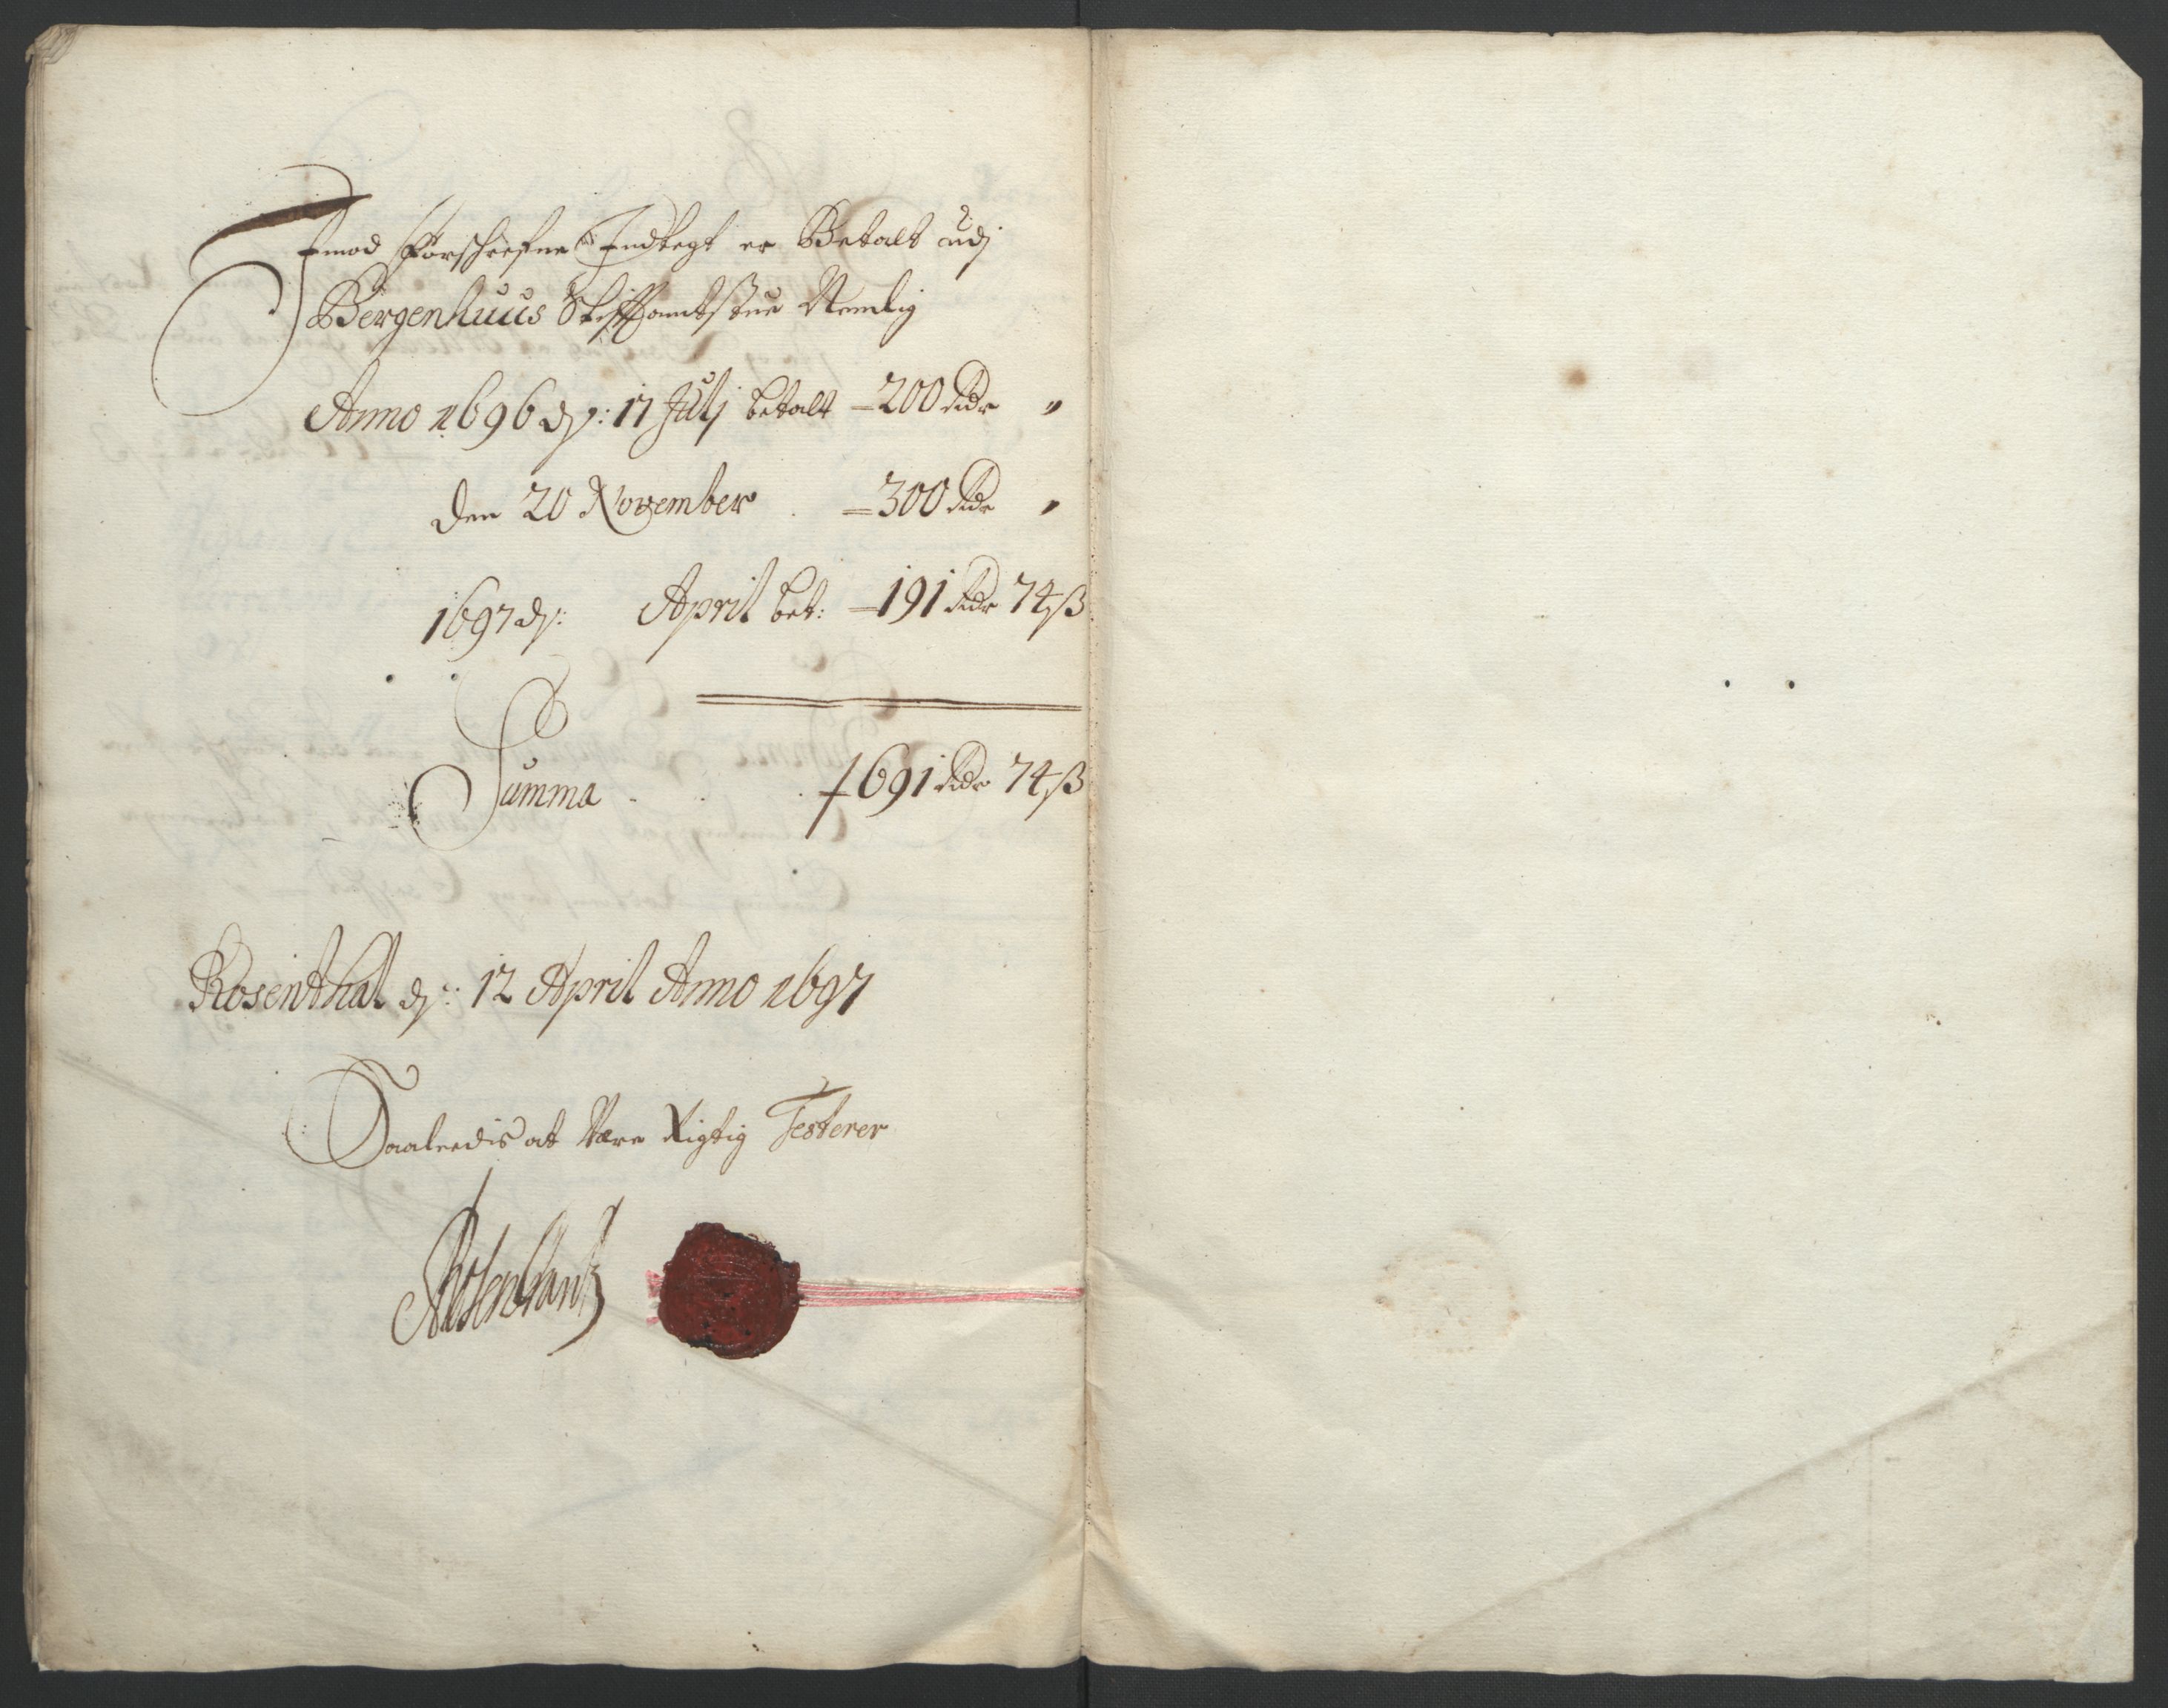 Imod Forschrefne Indtegt er Betalt udj
Bergenhuus Stifftamtstue Nemlig
Anno 1696 dn: 17 Julj betalt = 200 Rdr "
Den 20 November = 300 Rdr "
1697 dn: April bet: = 191 Rdr 74 ß
Summa 691 Rdr 74 ß
Rosenthal dn: 12 April Anno 1697
Saaleedis at Være Rigtig Testerer
ARosenkrantz